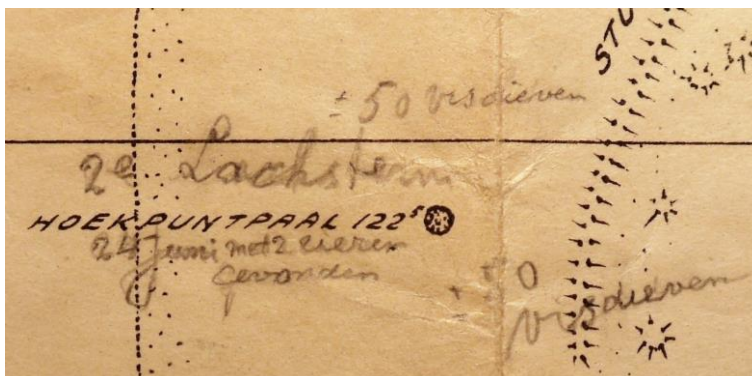 STU
± 50 visdieven
2e Lachstern
HOEKPUNTPAAL 122⁵
24 juni met 2 eieren
gevonden
± 50
visdieven